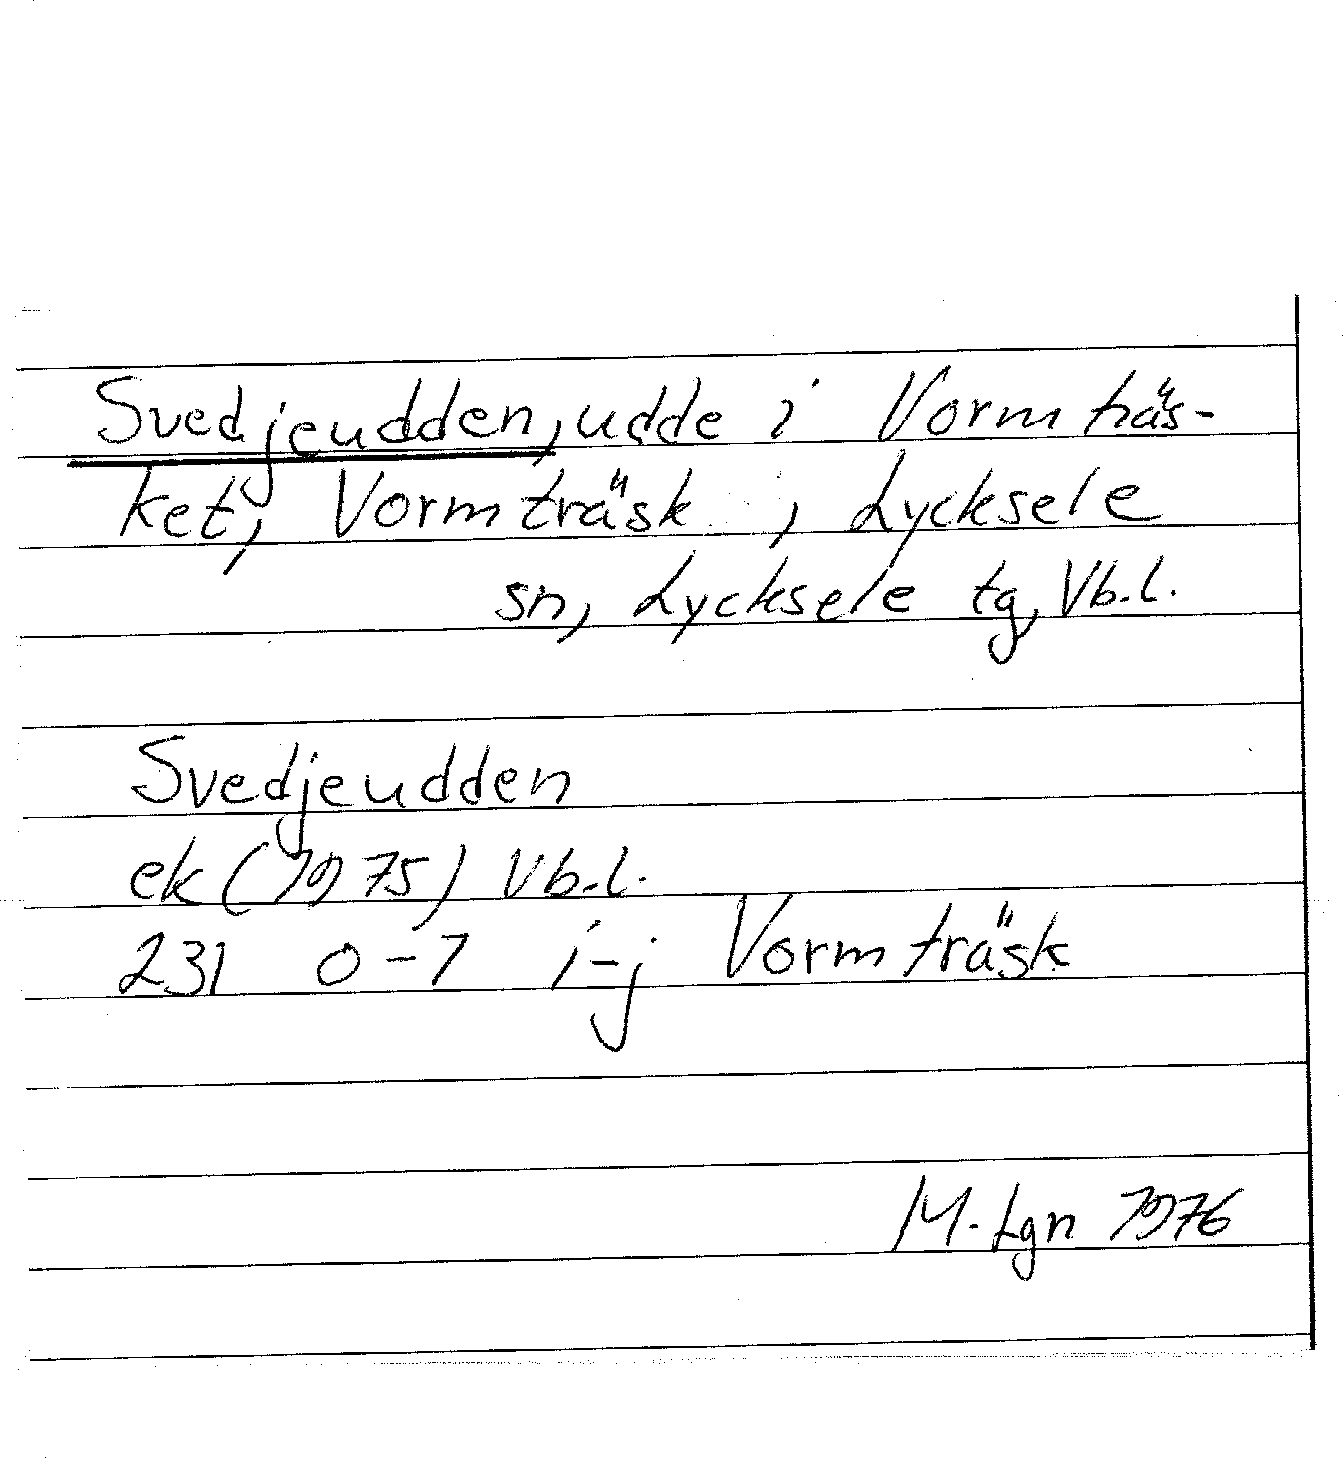 Svedjeudden, udde i Vormträs-
ket, Vormträsk, Lycksele
sn, Lycksele tg, Vb.l.
Svedjeudden
ek (1975) Vb.l.
231 0-1 i-j Vormträsk
M. Lgn 1976